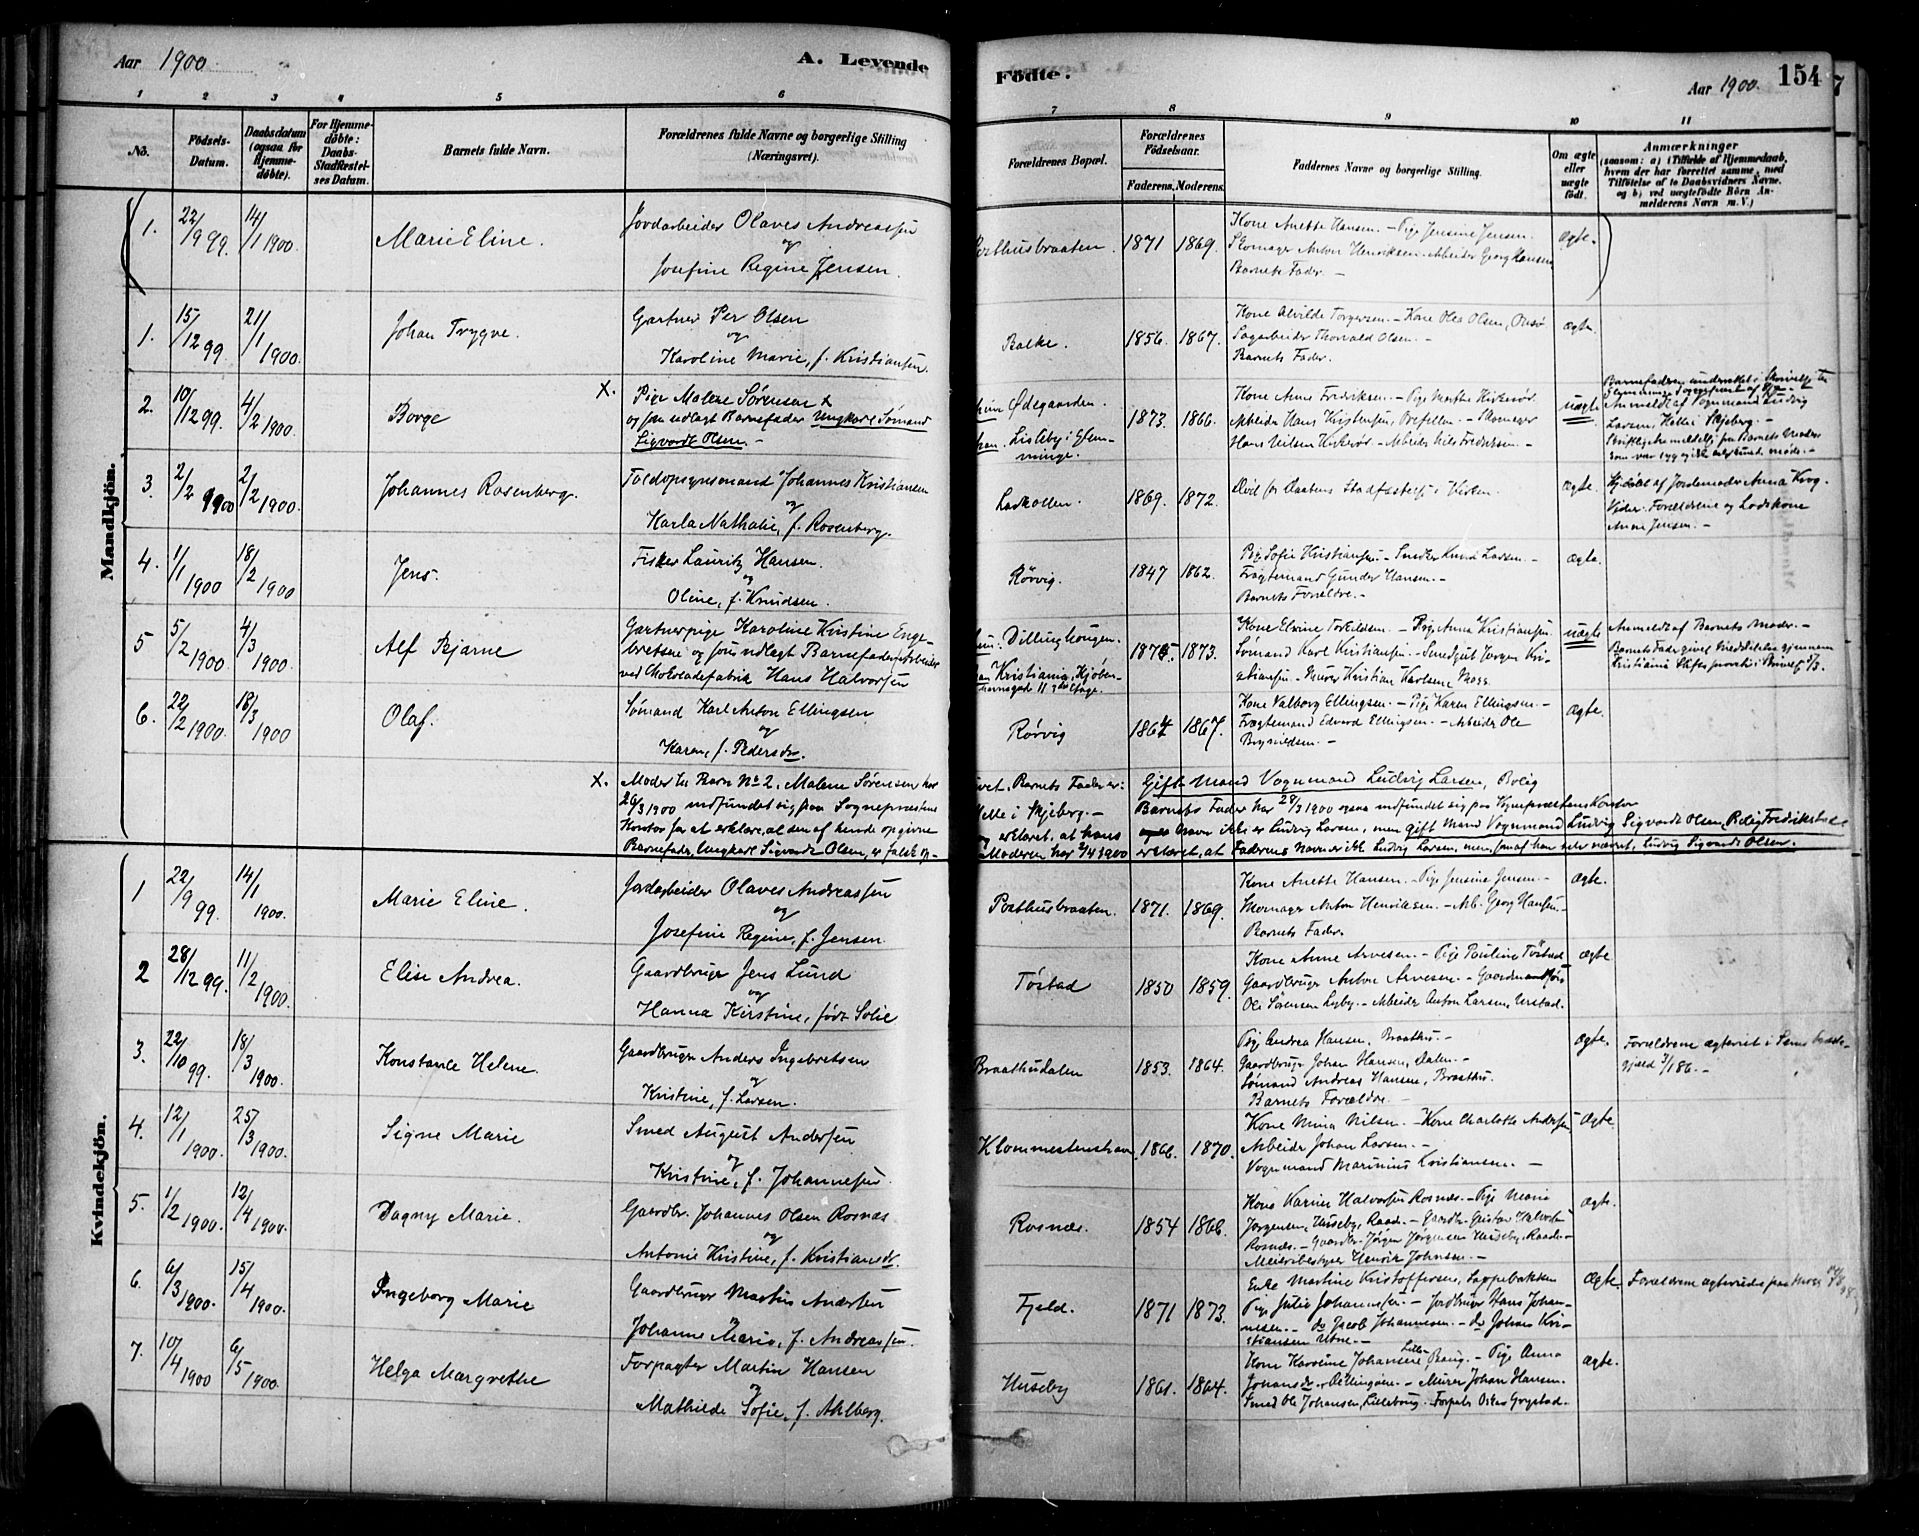 Aar 1900
A. Levende
Fødte.
Aar 1900.
154
1 2 3 4 5 6 7 8 9 10 11
No.
Fødsels-Datum.
Daabsdatum (ogsaa for Hjemmedøbte).
For Hjemmedøbte: Daabs-Stadfæstelses Datum.
Barnets fulde Navn.
Forældrenes fulde Navne og borgerlige Stilling (Næringsvei).
Forældrenes Bopæl.
Forældrenes Fødselsaar.
Faderens. Moderens.
Faddernes Navne og borgerlige Stilling.
Om ægte eller uægte født.
Anmærkninger
(saasom: a) (Tilfælde af Hjemmedaab, hvem der har forrettet samme, med Tilføielse af to Daabsvidners Navne, og b) ved uægtefødte Børn Anmelderens Navn m. V.)
Mandkjøn.
1. 22/9 99. 14/1 1900. Marie Eline. Jordarbeider Olaves Andreassen
og
Josefine Regine Jensen.
Posthusbraaten. 1871 1869. Kone Anette Hansen. – Pige Jensine Jensen.
Skomager Anton Henriksen. Arbeider Georg Hansen
Barnets Fader. –
Ægte.
1. 15/12 99. 21/1 1900. Johan Trygve. Gartner Per Olsen
og
Karoline Marie, f. Kristiansen.
Balke. 1856. 1867. Kone Alvilde Torgersen. – Kone Olea Olsen, Onsø
Sagarbeider Thorvald Olsen. –
Barnets Fader.
Ægte.
2. 10/12 99. 4/2 1900. Borge X. Pige Malene Sørensen
og som udlagt Barnefader Ungkarl Sømand
Sigvardt Olsen. –
Ødegaarden
Lisleby i Glemminge.
1873. 1866. Kone Anne Fredriksen. – Pige Marthe Kirkerør.
Arbeider Hans Kristensen, – Skomager
Hans Nilsen Kirkerør. – Arbeider Nils Fredriksen. –
uægte
Anmeldt af Vognmand Ludvig
Larsen, Helle i Skjeberg. –
Skriftlig anmeldelse fra Barnets Moder
som var syg og ikke selv kunde møde. –
3. 2/2 1900 2/2 1900. Johannes Rosenberg. Toldopsynsmand Johannes Kristiansen
og
Karla Nathalie, f. Rosenberg.
Larkollen. 1869. 1872. Død før Daabens Stadfæstelse i Kirken. Ægte.
Hjdøbt af Jordemoder Anna Krog.
Vidner: Forældrene og Lodskone
Anne Jensen. –
4. 1/1 1900 18/2 1900. Jens. Fisker Lauritz Hansen.
og
Oline, f. Knudsen.
Rørvig. 1847 1862. Pige Sofie Kristiansen – Snedker Knud Larsen. –
Fragtemand Gunder Hansen. –
Barnets Forældre. –
Ægte.
5 5/2 1900. 4/3 1900. Alf Bjarne Gartnerpige Karoline Kristine Engebretsen
og som udlagt Barnefader Arbeider
ved Chokoladefabrik Hans Halvorsen
Dillinghaugen.
Kristiania, Kjøbenhavnsgade 11 3die Etage.
1873. Kone Elvine Torkildsen. – Pige Anne Kristiansen.
Sømand Karl Kristiansen. – Smedgut Jørgen Kristiansen. – Murer Kristian Karlsen Moss.
uægte Anmeldt af Barnets Moder. –
Barnets Fader givet Meddelelse gjennem
Kristiania Stiftsprovsti
6. 22/2 1900. 18/3 1900 Olaf. Sømand Karl Anton Ellingsen
og
Karen, f. Pedersdr.
Rørvig 1864 1867. Kone Valborg Ellingsen. – Pige Karen Ellingsen. –
Fragtemand Edvard Ellingsen. – Arbeider Ole
Brynildsen. –
Ægte.
X. Moder til Barn No 2, Malene Sørensen har
26/3 1900 indfundet sig paa Sognepræstens
Kontor for at erklære, at den af hende opgivne
Barnefader, Ungkarl Sigvardt Olsen, er falsk op-
givet, Barnets Fader er: Gift Mand Vognmand Ludvig Larsen, Bolig
Helle i Skjeberg. – Barnets Fader har 28/3 1900 ogsaa indfundet sig paa Sognepræstens Kontor
og erklæret, at hans Navn ikke er Ludvig Larsen, men gift Mand Vognmand Ludvig Sigvardt Olsen, Bolig Fredrikstad
Moderen har 2/4 1900 erklæret, at Faderens Navn er ikke Ludvig Larsen, men, som af han selv nævnt, Ludvig Sigvardt Olsen.
Kvindekjøn.
1 22/9 99. 14/1 1900. Marie Eline. Jordarbeider Olaves Andreassen
og
Josefine Regine, f. Jensen.
Posthusbraaten. 1871. 1869. Kone Anette Hansen. – Pige Jensine Jensen. –
Skomager Anton Henriksen. – Arb. Georg Hansen. –
Barnets Fader.
Ægte.
2 28/12 99. 11/2 1900. Elise Andrea. Gaardbruger Jens Lund
og
Hanna Kirstine, født Solie
Tøstad 1850 1859. Kone Anne Arvesen. – Pige Pauline Tøstad
Gaardbruger Anton Arvesen. –
Ole Sørensen Lyby. – Arbeider Anton Larsen, Urstad.
Ægte
3. 22/10 99. 18/3 1900. Konstance Helene. Gaardbruger Anders Ingebretsen
og
Kristine, f. Larsen.
Braathudalen 1853. 1864. Pige Andrea Hansen, Braathu. –
Gaardbruger Johan Hansen, Dalen. –
Sømand Andreas Hansen, Braathu.
Barnets Forældre. –
Ægte. Forældrene ægteviet i Sems Præstegjeld
4. 12/1 1900. 25/3 1900. Signe Marie Smed August Andersen
og
Kristine, f. Johannesen.
Klommestenshavn 1866. 1870. Kone Mina Nilsen. – Kone Charlotte Andersen
Arbeider Johan Larsen. –
Vognmand Marinius Kristiansen. –
Ægte.
5. 1/2 1900. 12/4 1900. Dagny Marie. Gaardbr. Johannes Olsen Rosnæs
og
Antonie Kristine, f. Kristiansdr.
Rosnæs. 1854 1866. Kone Karine Halvorsen Rosnæs. – Pige Maria
Jørgensen, Huseby, Raade. – Gaardbr. Gustav Halvorsen
Rosnæs. – Gaardbr. Jørgen Jørgensen Huseby, Raade. –
Meieribestyrer Henrik Johnsen. –
Ægte.
6. 6/3 1900. 15/4 1900. Ingeborg Marie Gaardbruger Martin Andersen
og
Johanne Marie, f. Andreassen.
Fjeld. 1871 1873. Enke Martine Kristoffersen, Sappebakken
Pige Julie Johannesen. – Jordbruger Hans Johannesen. – do Jacob Johannesen. – do Johan Kristiansen Utne. –
Ægte. Forældrene ægteviede paa Moss
7. 10/4 1900 6/5 1900. Helga Margrethe Forpagter Martin Hansen
og
Mathilde Sofie, f. Ahlberg.
Huseby 1861. 1864. Kone Karoline Johansen, Lille Baug. – Pige Anna
Johansdr. Dillingøen. – Murer Johan Hansen.
Smed Ole Johansen, Lilleborg. Forpagter Oskar Grystad. –
Ægte.